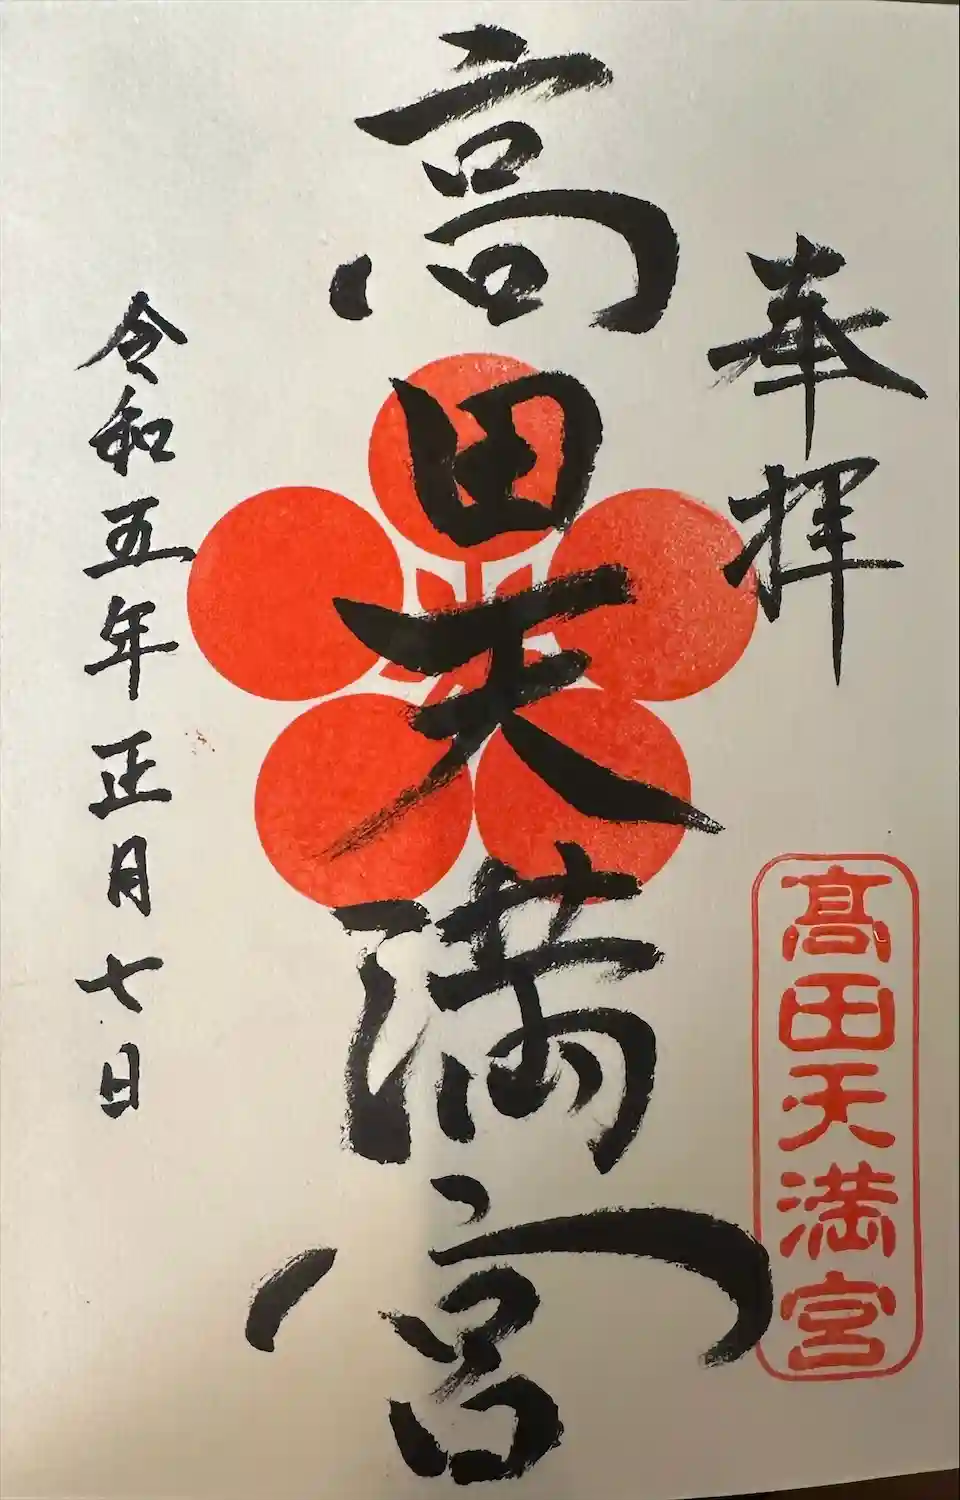 奉拝
髙田天満宮
高田天満宮
令和五年正月七日